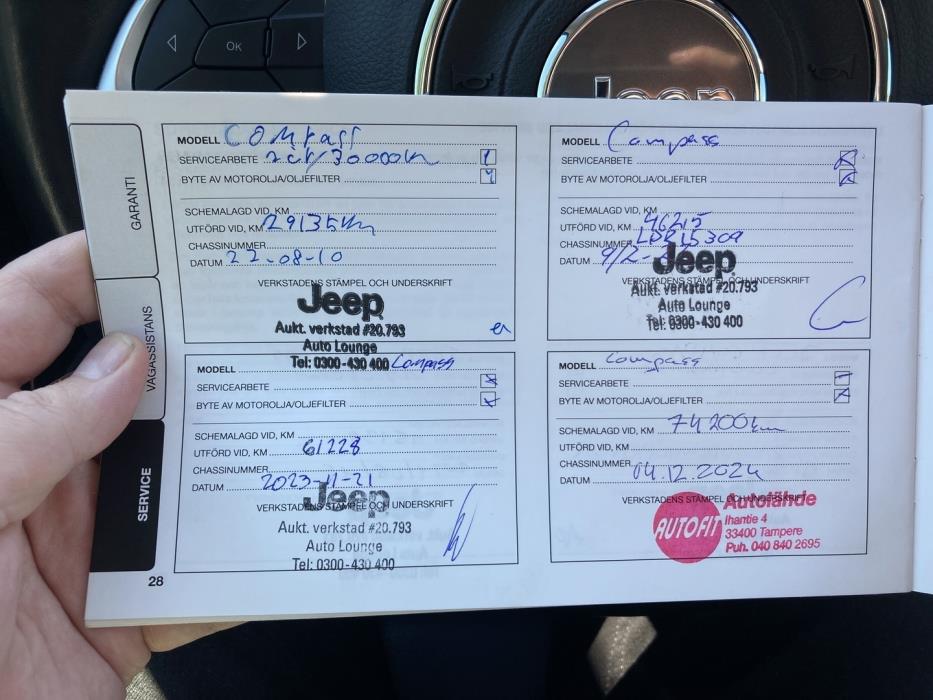 OK
Jeep
GARANTI
VÄGASSISTANS
SERVICE
MODELL COMPASS
SERVICEARBETE 2 år/30000km
BYTE AV MOTOROLJA/OLJEFILTER
SCHEMALAGD VID, KM
UTFÖRD VID, KM 29135km
CHASSINUMMER
DATUM 22-08-10
VERKSTADENS STÄMPEL OCH UNDERSKRIFT
Jeep
Aukt. verkstad #20.793
Auto Lounge
Tel: 0300-430 400
MODELL Compass
SERVICEARBETE
BYTE AV MOTOROLJA/OLJEFILTER
SCHEMALAGD VID, KM
UTFÖRD VID, KM 46215
CHASSINUMMER
DATUM 9/2-
VERKSTADENS STÄMPEL OCH UNDERSKRIFT
Jeep
Aukt. verkstad #20.793
Auto Lounge
Tel: 0300-430 400
MODELL Compass
SERVICEARBETE
BYTE AV MOTOROLJA/OLJEFILTER
SCHEMALAGD VID, KM
UTFÖRD VID, KM 61228
CHASSINUMMER
DATUM 2023-11-21
VERKSTADENS STÄMPEL OCH UNDERSKRIFT
Jeep
Aukt. verkstad #20.793
Auto Lounge
Tel: 0300-430 400
MODELL Compass
SERVICEARBETE
BYTE AV MOTOROLJA/OLJEFILTER
SCHEMALAGD VID, KM 74200km
UTFÖRD VID, KM
CHASSINUMMER
DATUM 04.12.2024
VERKSTADENS STÄMPEL OCH UNDERSKRIFT
AUTOFIT
Autolähde
Ihantie 4
33400 Tampere
Puh. 040 840 2695
28